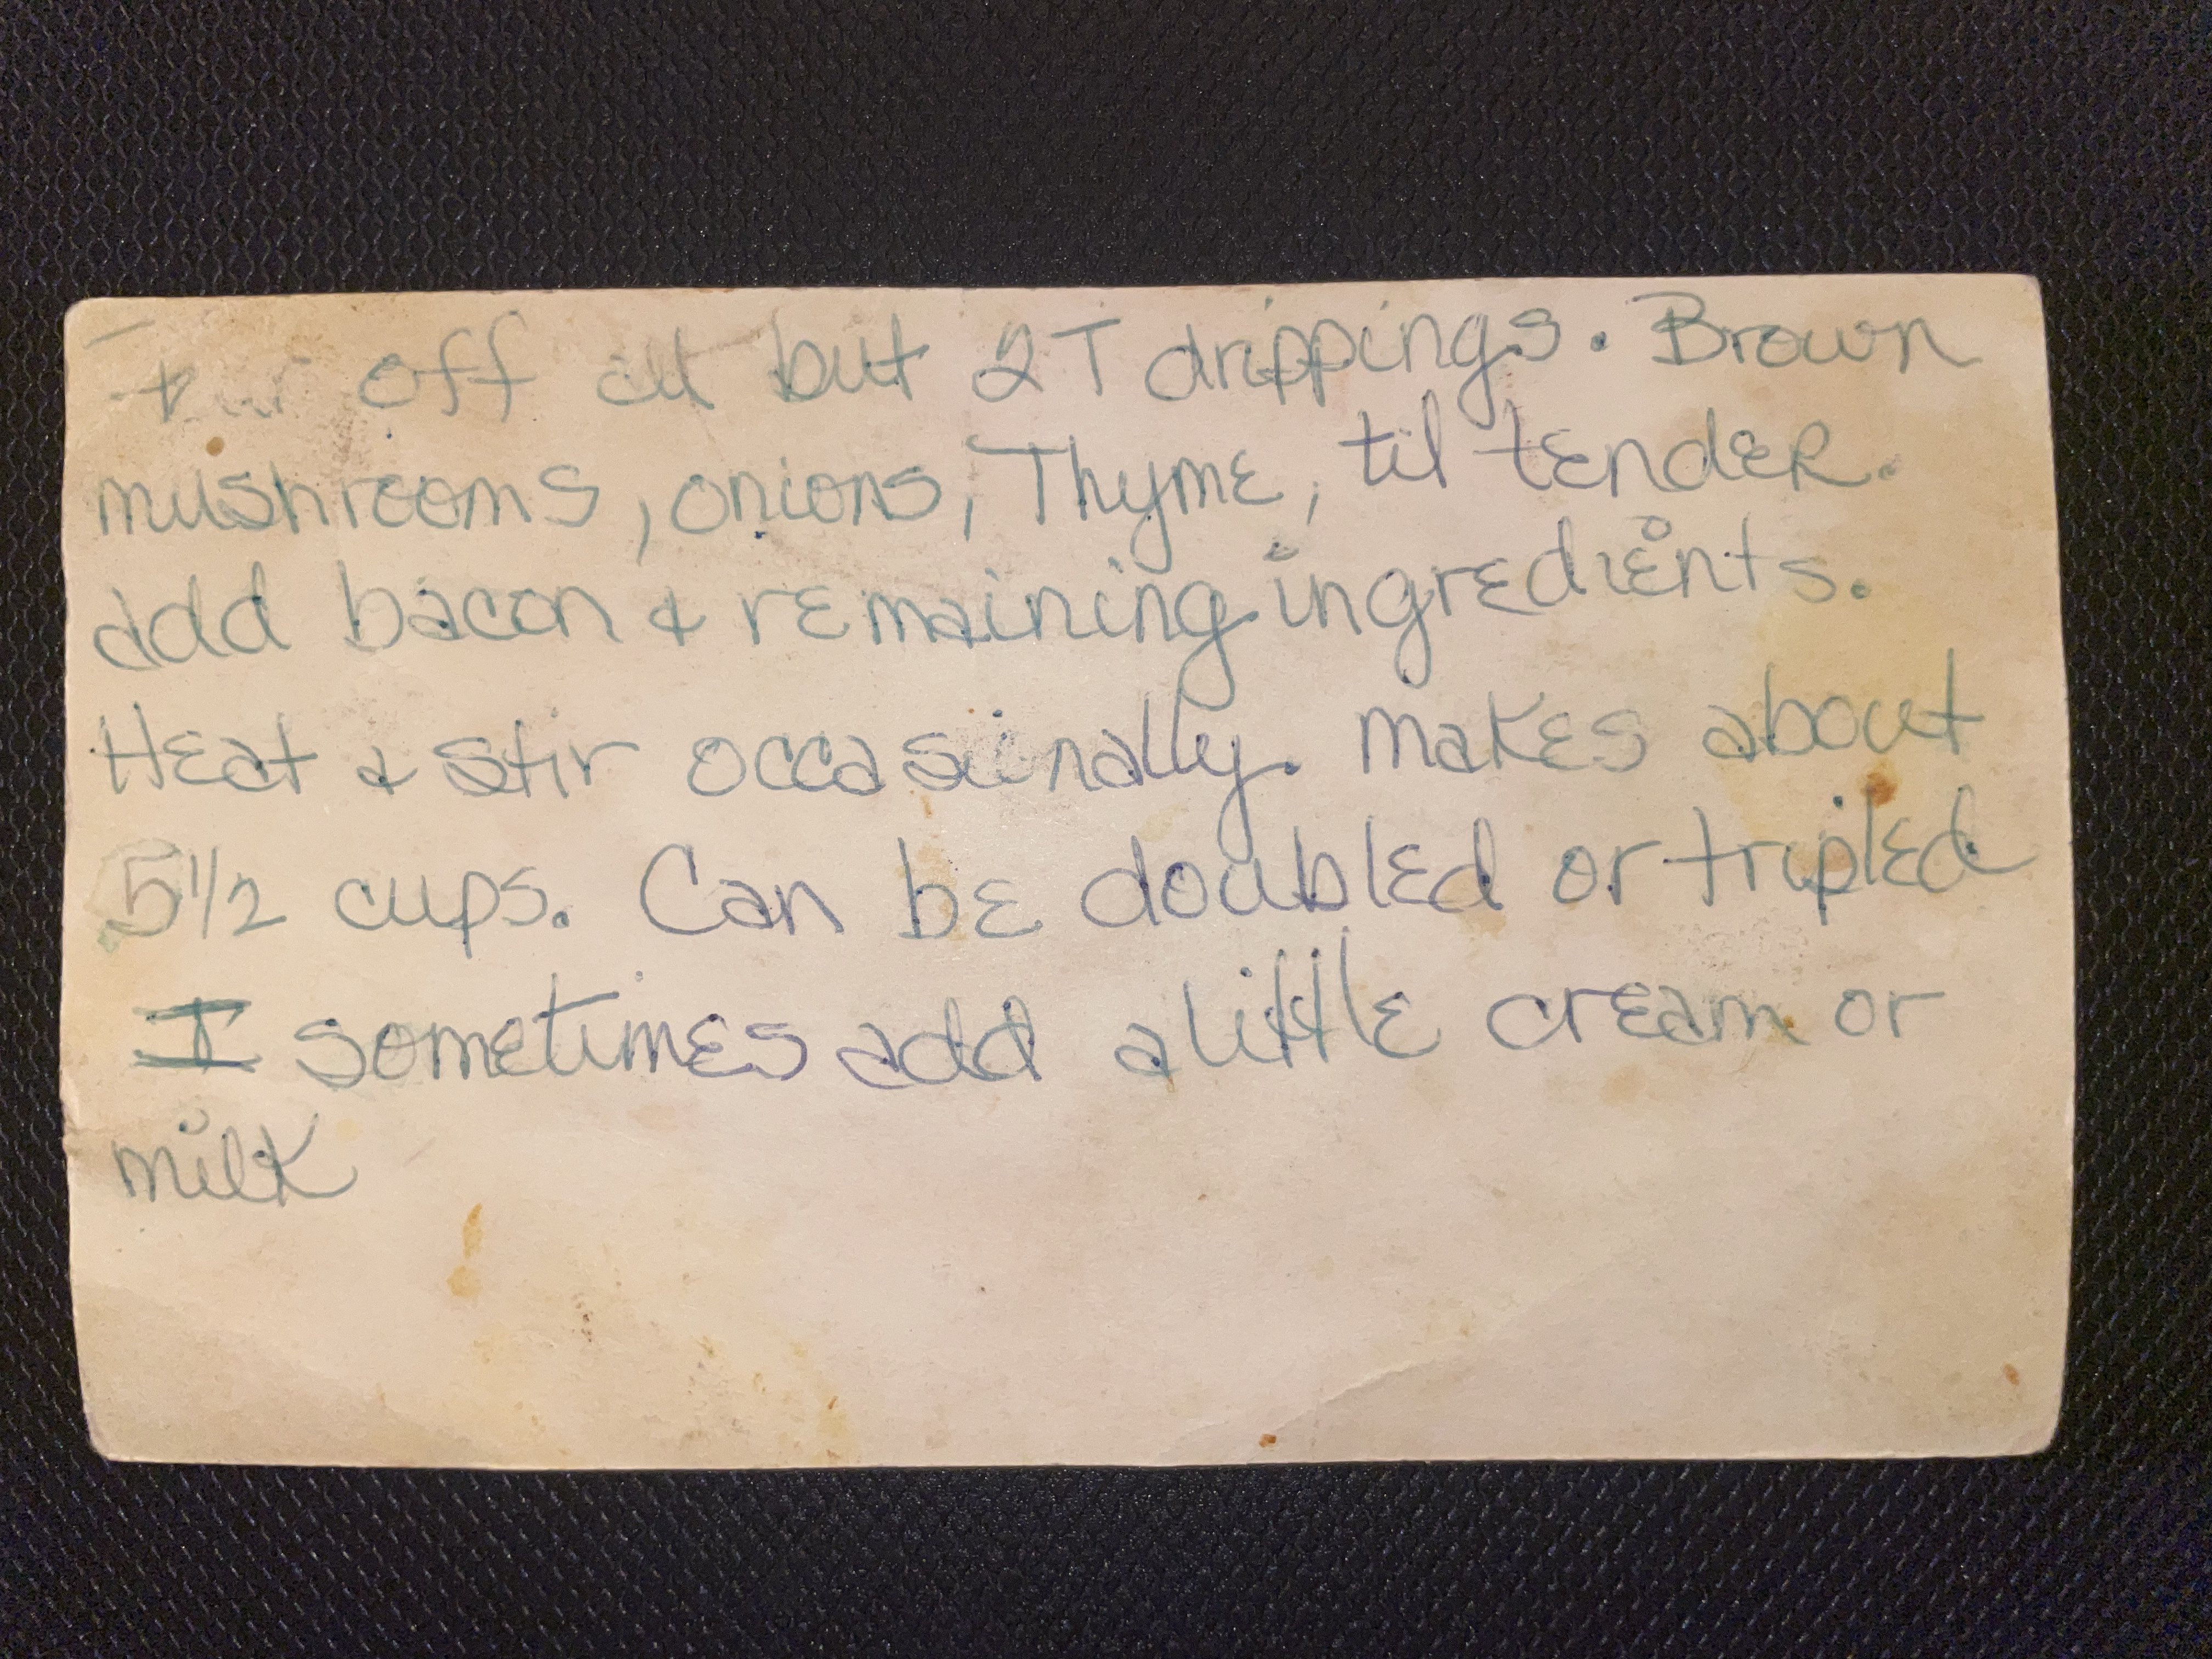 off all but 2T drippings. Brown
mushrooms, onions, Thyme, til tender.
add bacon & remaining ingredients.
Heat & stir occasionally. Makes about
5 1/2 cups. Can be doubled or tripled
I sometimes add a little cream or
milk